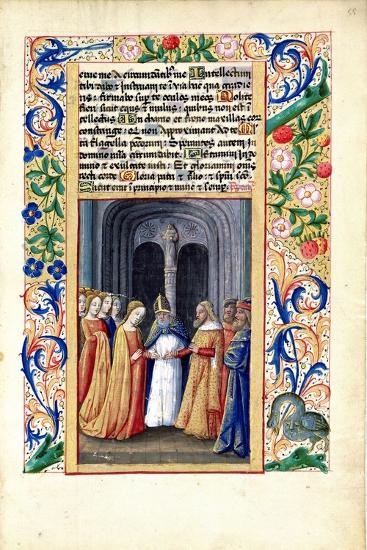 erue me a circundatibus me Intellectum
tibi dabo et instruam te i via hac qua gradie
ris : firmabo sup te oculos meos Nolite
fieri sicut equs et mulus : quibus non est i
tellectus In chamo et freno maxillas eorum
constringe : qui non approximant ad te M
ta flagella pctorum : Sperantes autem i
domino mia circundabit Letamini i do
mino et exultate iusti : Et gloriamini omes
recti corde Gloria patri et filio : et spui sco
Sicut erat i principio et nunc et semp
55